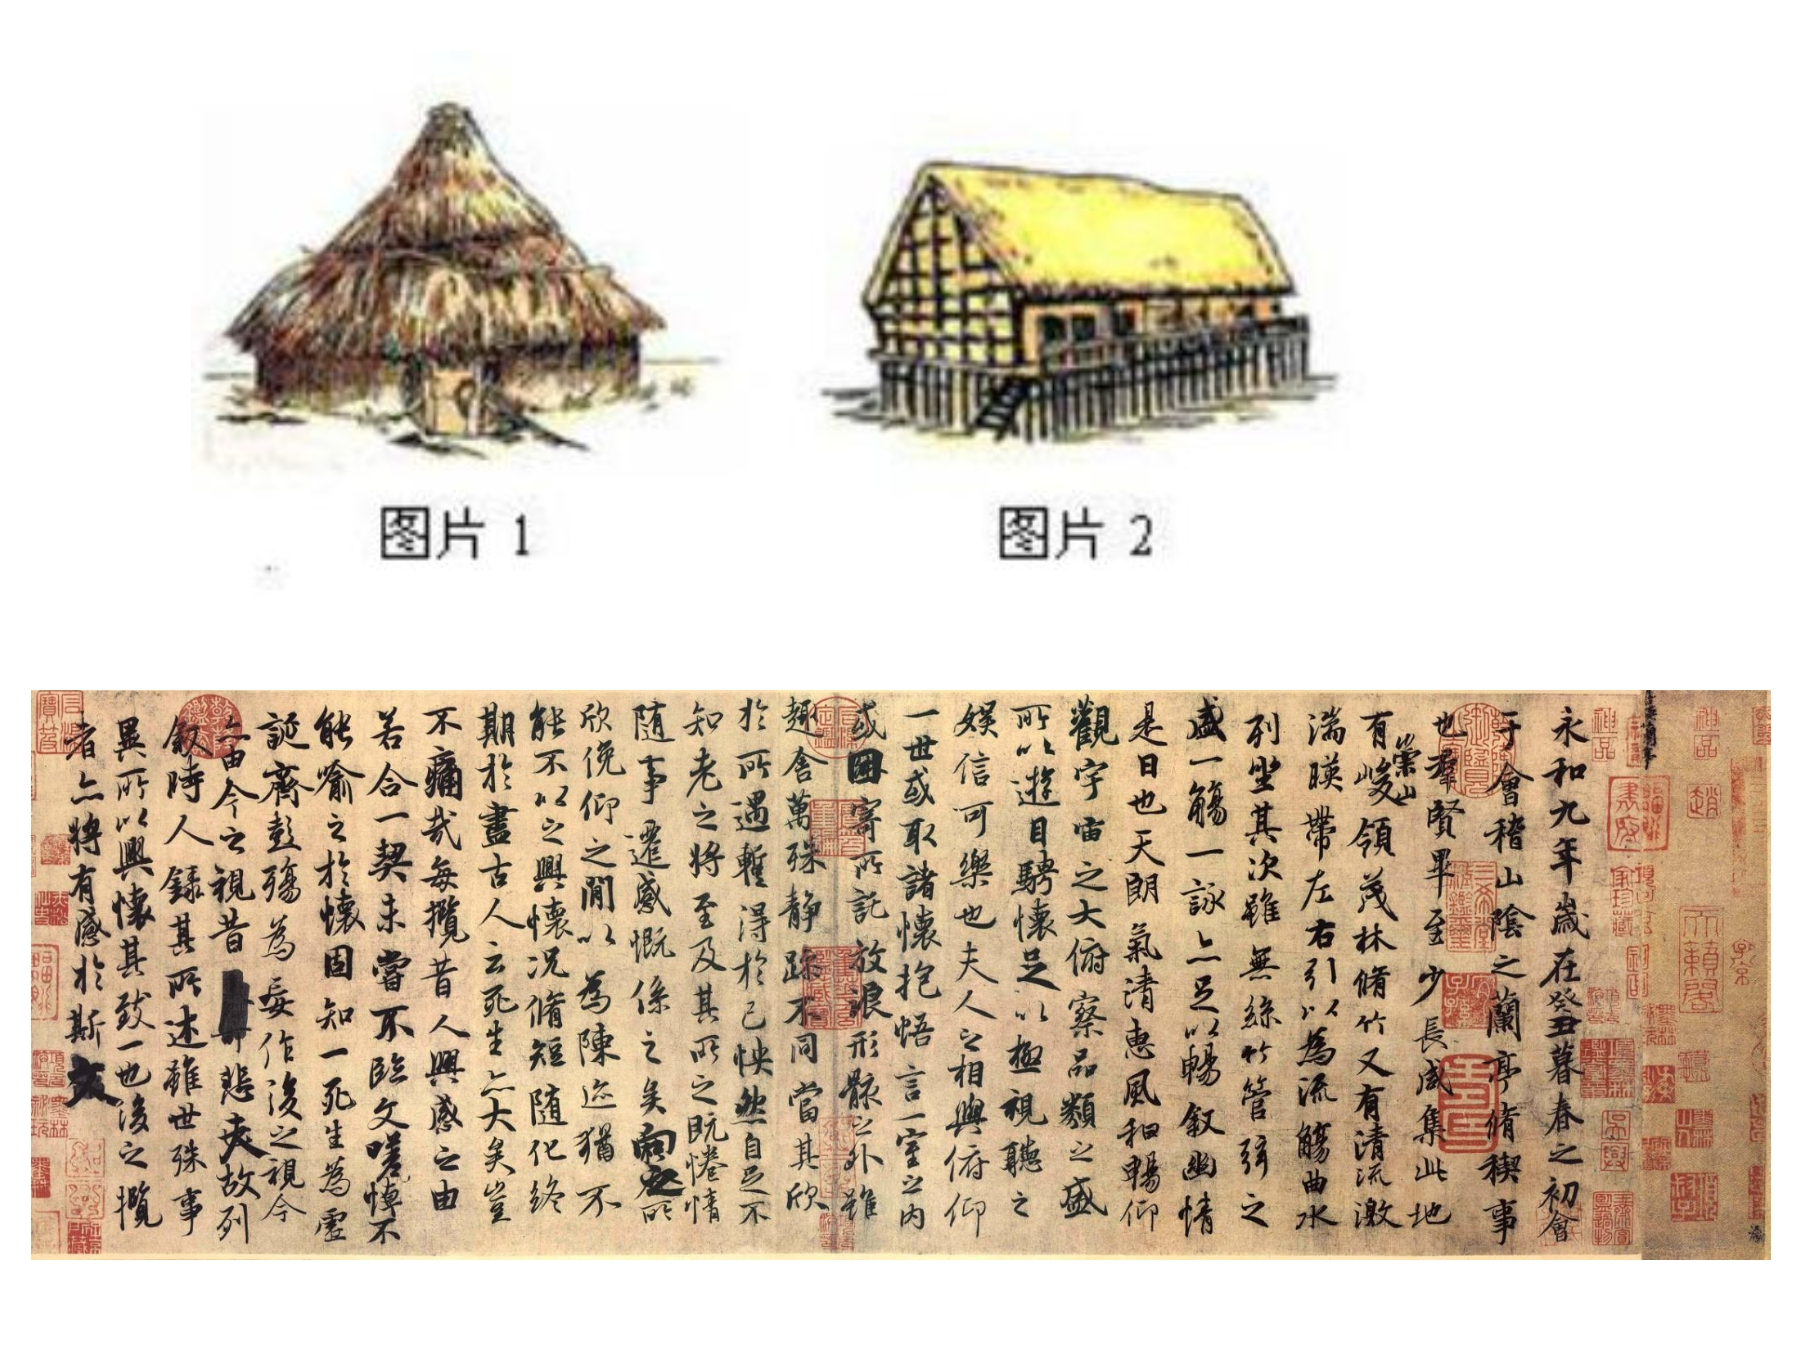 图片 1
图片 2
永和九年歲在癸丑暮春之初會
于會稽山陰之蘭亭脩稧事
也羣賢畢至少長咸集此地
有崇山峻領茂林脩竹又有清流激
湍暎帶左右引以為流觴曲水
列坐其次雖無絲竹管弦之
盛一觴一詠亦足以暢敘幽情
是日也天朗氣清惠風和暢仰
觀宇宙之大俯察品類之盛
所以遊目騁懷足以極視聽之
娛信可樂也夫人之相與俯仰
一世或取諸懷抱悟言一室之內
或因寄所託放浪形骸之外雖
趣舍萬殊靜躁不同當其欣
於所遇暫得於己怏然自足不
知老之將至及其所之既惓情
隨事遷感慨係之矣向之所
欣俛仰之閒以為陳迹猶不
能不以之興懷況脩短隨化終
期於盡古人云死生亦大矣豈
不痛哉每攬昔人興感之由
若合一契未嘗不臨文嗟悼不
能喻之於懷固知一死生為虛
誕齊彭殤為妄作後之視今
亦由今之視昔悲夫故列
敘時人錄其所述雖世殊事
異所以興懷其致一也後之攬
者亦將有感於斯文